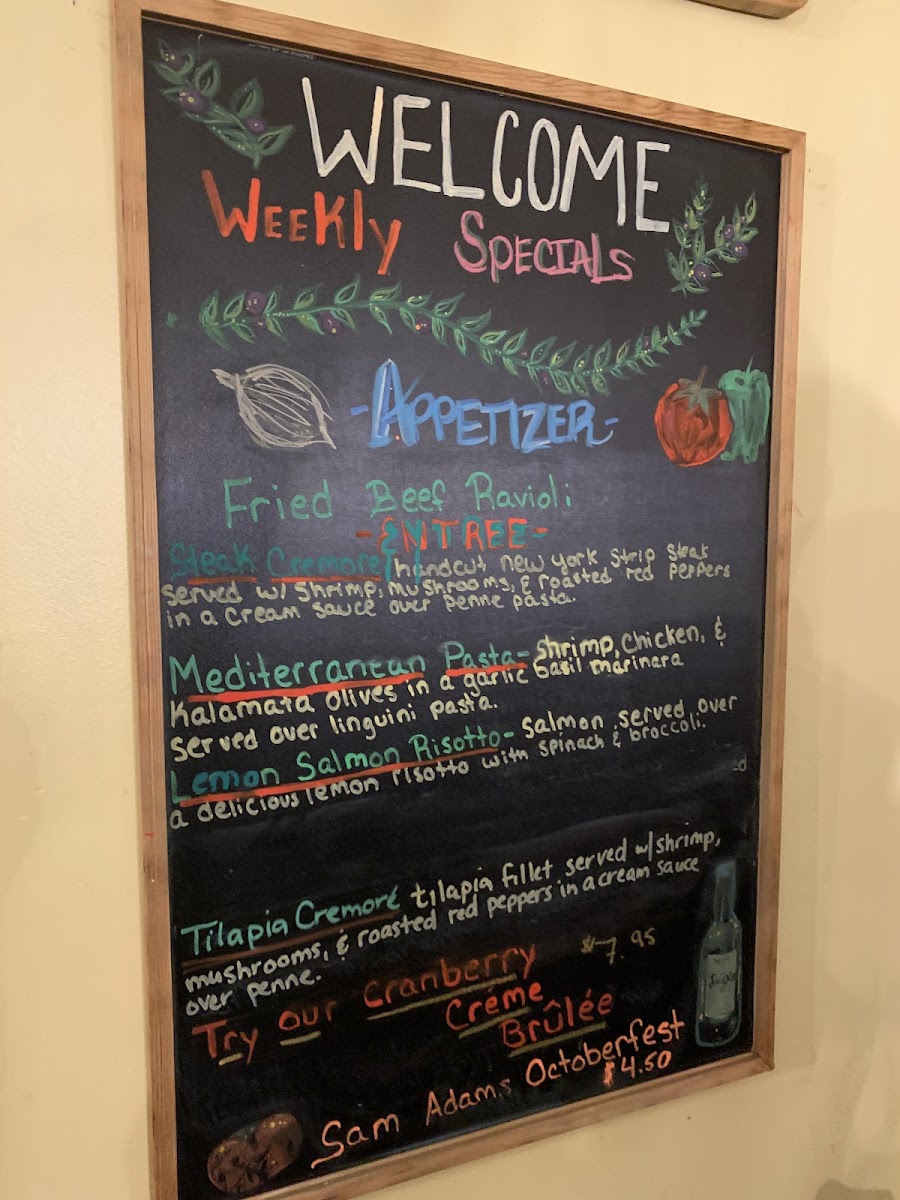 WELCOME
Weekly Specials
-APPETIZER-
Fried Beef Ravioli
-ENTREE-
Steak Cremore, handcut new york strip steak
served w/ shrimp, mushrooms, & roasted red peppers
in a cream sauce over penne pasta.
Mediterranean Pasta- shrimp, chicken, &
Kalamata olives in a garlic basil marinara
served over linguini pasta.
Lemon Salmon Risotto- Salmon served over
a delicious lemon risotto with spinach & broccoli.
Tilapia Cremoré tilapia fillet served w/ shrimp,
mushrooms, & roasted red peppers in a cream sauce
over penne.
Try our cranberry $7.95
Créme
Brûlée
Sam Adams Octoberfest
$4.50